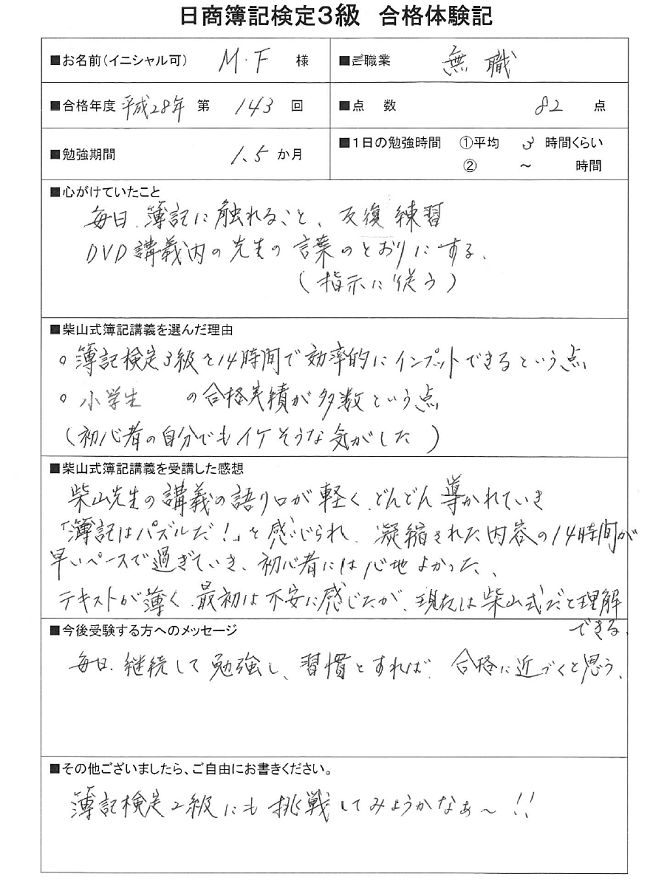 日商簿記検定3級 合格体験記
■お名前(イニシャル可) M.F 様 ■ご職業 無職
■合格年度 平成28年 第 143 回 ■点 数 82 点
■勉強期間 1.5 か月 ■1日の勉強時間 ①平均 3 時間くらい
② ~ 時間
■心がけていたこと
毎日、簿記に触れること、反復練習
DVD講義内の先生の言葉のとおりにする。
(指示に従う)
■柴山式簿記講義を選んだ理由
○簿記検定3級を14時間で効率的にインプットできるという点
○小学生 の合格実績が多数という点
(初心者の自分でもイケそうな気がした)
■柴山式簿記講義を受講した感想
柴山先生の講義の語り口が軽く、どんどん導かれていき
「簿記はパズルだ!」と感じられ、凝縮された内容の14時間が
早いペースで過ぎていき、初心者には心地よかった、
テキストが薄く、最初は不安に感じたが、現在は柴山式だと理解
できる。
■今後受験する方へのメッセージ
毎日、継続して勉強し、習慣とすれば、合格に近づくと思う。
■その他ございましたら、ご自由にお書きください。
簿記検定2級にも挑戦してみようかなぁ~!!